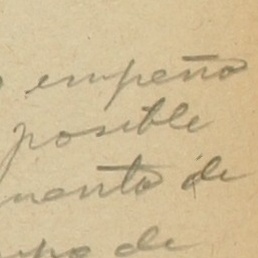 o empeño
posible
mento de
upo de